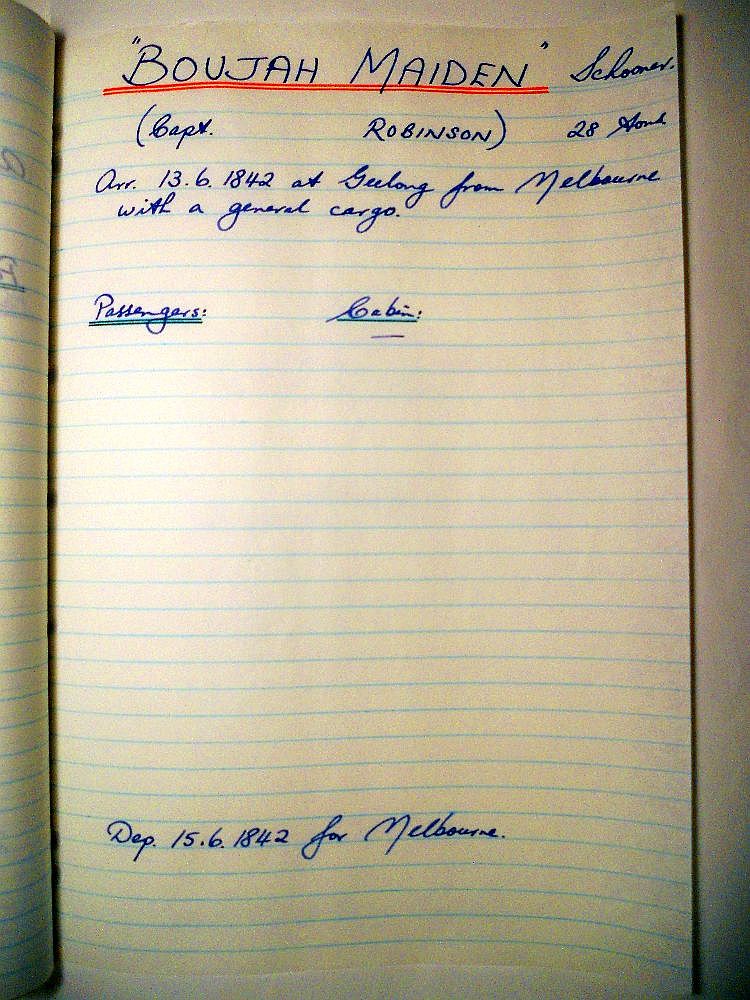 "BOUJAH MAIDEN" Schooner.
(Capt. ROBINSON) 28 tons.
Arr. 13.6.1842 at Geelong from Melbourne
with a general cargo.
Passengers: Cabin:
—
Dep. 15.6.1842 for Melbourne.